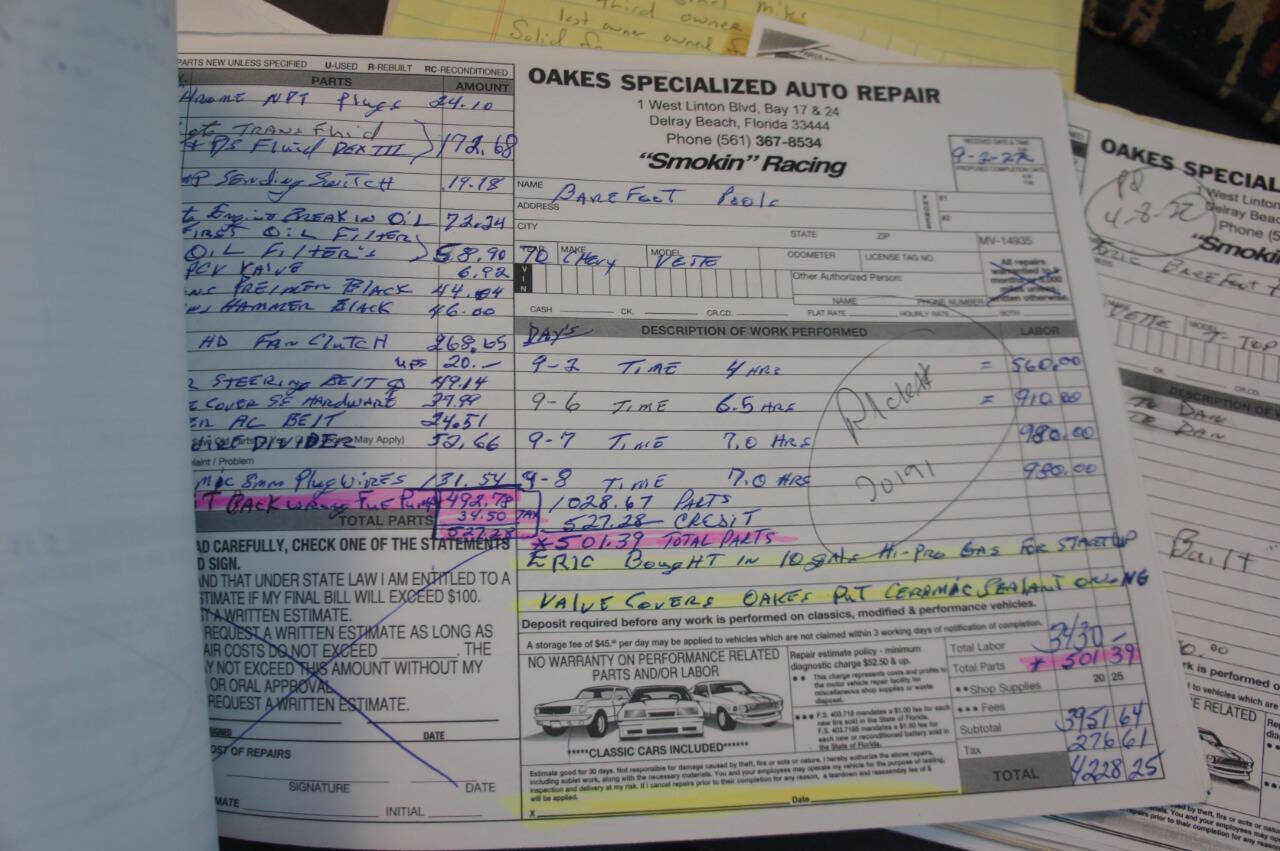 miles
third owner
last owner owned
Solid
PARTS NEW UNLESS SPECIFIED U-USED R-REBUILT RC-RECONDITIONED
PARTS AMOUNT
HROME NPT Plugs 24.10
TRANS Fluid
P/S Fluid DEX III 172.68
SENDING SWITCH 19.18
ENGINE BREAK IN OIL 72.24
FIRST OIL FILTER
OIL FILTER'S 58.90
PCV VALVE 6.92
PREIMER BLACK 44.04
HAMMER BLACK 46.00
HD FAN CLUTCH 268.65
UPS 20.—
STEERING BELT 49.14
COVER SS HARDWARE 37.99
ER AC BELT 24.51
DIVIDER 52.66
May Apply)
laint / Problem
8mm PlugWIRES 131.54
BACK WRONG FUE PUMP 492.78
34.50 TAX
527.28
TOTAL PARTS
AD CAREFULLY, CHECK ONE OF THE STATEMENTS
D SIGN.
AND THAT UNDER STATE LAW I AM ENTITLED TO A
STIMATE IF MY FINAL BILL WILL EXCEED $100.
ST A WRITTEN ESTIMATE.
REQUEST A WRITTEN ESTIMATE AS LONG AS
AIR COSTS DO NOT EXCEED THE
Y NOT EXCEED THIS AMOUNT WITHOUT MY
OR ORAL APPROVAL.
REQUEST A WRITTEN ESTIMATE.
SIGNED DATE
OST OF REPAIRS
SIGNATURE DATE
MATE INITIAL
OAKES SPECIALIZED AUTO REPAIR
1 West Linton Blvd, Bay 17 & 24
Delray Beach, Florida 33444
Phone (561) 367-8534
"Smokin" Racing
RECEIVED DATE & TIME
9-2-22
PROPOSED COMPLETION DATE
NAME BAREFOOT POOLS
ADDRESS
PHONES #1
#2
CITY STATE ZIP MV-14935
YEAR MAKE MODEL ODOMETER LICENSE TAG NO.
70 CHEVY VETTE
VIN
Other Authorized Person:
NAME PHONE NUMBER
All repairs
CASH CK. CR.CD. FLAT RATE HOURLY RATE BOTH
DAY'S DESCRIPTION OF WORK PERFORMED LABOR
9-2 TIME 4 HRS = 560.00
9-6 TIME 6.5 HRS = 910.00
9-7 TIME 7.0 HRS 980.00
9-8 TIME 7.0 HRS 980.00
20191
1028.67 PARTS
527.28 CREDIT
*501.39 TOTAL PARTS
ERIC BOUGHT IN 10 gals HI-PRO GAS FOR STARTUP
VALVE COVERS OAKES PUT CERAMIC SEALANT ON
Deposit required before any work is performed on classics, modified & performance vehicles.
A storage fee of $45.00 per day may be applied to vehicles which are not claimed within 3 working days of notification of completion.
NO WARRANTY ON PERFORMANCE RELATED
PARTS AND/OR LABOR
*****CLASSIC CARS INCLUDED******
Repair estimate policy - minimum
diagnostic charge $52.50 & up.
** This charge represents costs and profits to
the motor vehicle repair facility for
miscellaneous shop supplies or waste
disposal.
*** F.S. 403.718 mandates a $1.00 fee for each
new tire sold in the State of Florida.
*** F.S. 403.7185 mandates a $1.50 fee for
each new or reconditioned battery sold in
the State of Florida.
Total Labor 3430 —
Total Parts * 501 39
**Shop Supplies 20 25
*** Fees
Subtotal 3951 64
Tax 276 61
TOTAL 4228 25
Estimate good for 30 days. Not responsible for damage caused by theft, fire or acts or nature. I hereby authorize the above repairs,
including sublet work, along with the necessary materials. You and your employees may operate my vehicle for the purpose of testing,
inspection and delivery at my risk. If I cancel repairs prior to their completion for any reason, a teardown and reassembly fee of $
will be applied.
X Date
OAKES SPECIAL
1 West Linton
Delray Bea
Phone (5
"Smokin
PD
4-8-22
ERIC BAREFOOT
VETTE MODEL T-TOP
DESCRIPTION OF
TO DAN
TO DAN
Built
rk is performed o
E RELATED